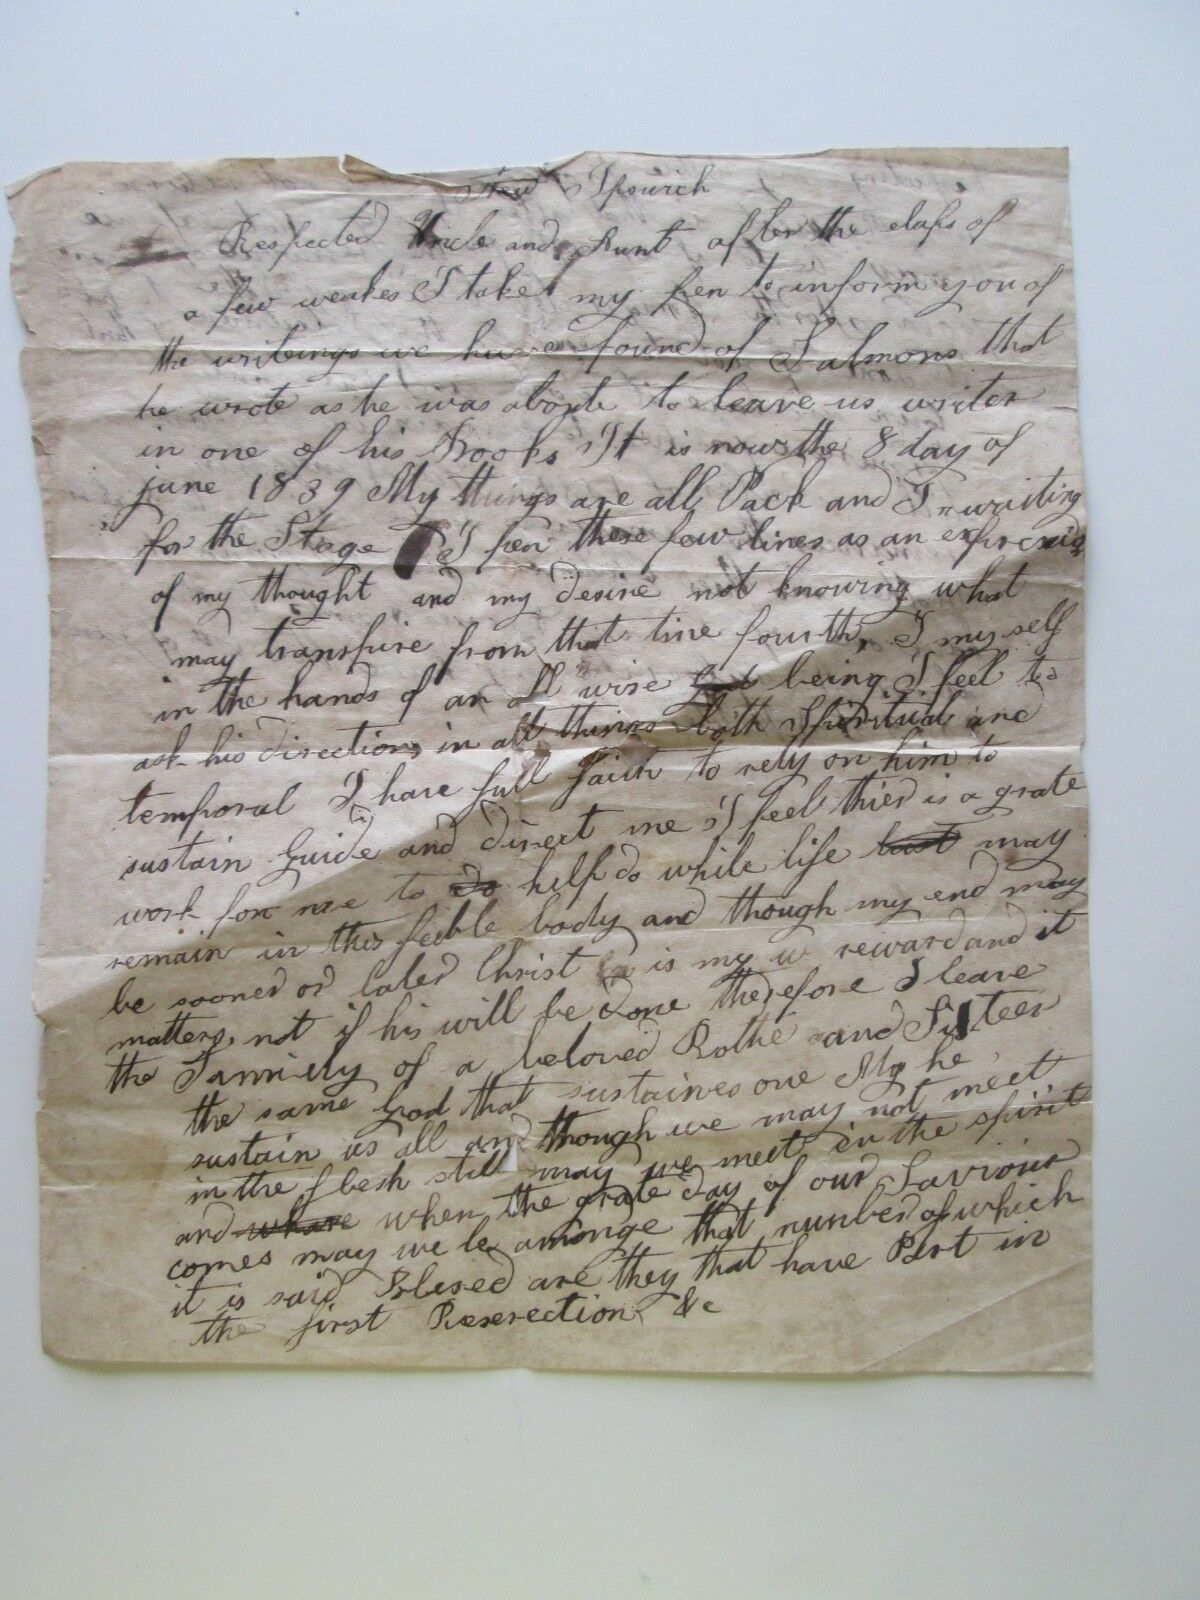 New Ipswich
Respected Uncle and Aunt after the elaps of
a few weakes I take my pen to inform you of
the writings we have found of Salmons that
he wrote as he was about to leave us writen
in one of his Books It is now the 8 day of
june 1839 My things are all Pack and I waiting
for the Stage I pen these few lines as an
of my thought and my desire not knowing what
may transpire from that time fourth, I my self
in the hands of an all wise being I feel to
ask his directions in all things both Spiritual and
temporal I have full faith to rely on him to
sustain Guide and direct me I feel thier is a grate
work for me to do help do while life last may
remain in this feeble body and though my end may
be sooner or later Christ is my w reward and it
matters not if his will be done therefore I leave
the Family of a beloved Bothe and Sisteer
the same God that sustaines one My he
sustain us all and though we may not meet
in the flesh still may we meet in the spirit
and whare when the grate day of our Saviour
comes may we be amonge that number of which
it is said Blesed are they that have Part in
the first Reserection &c